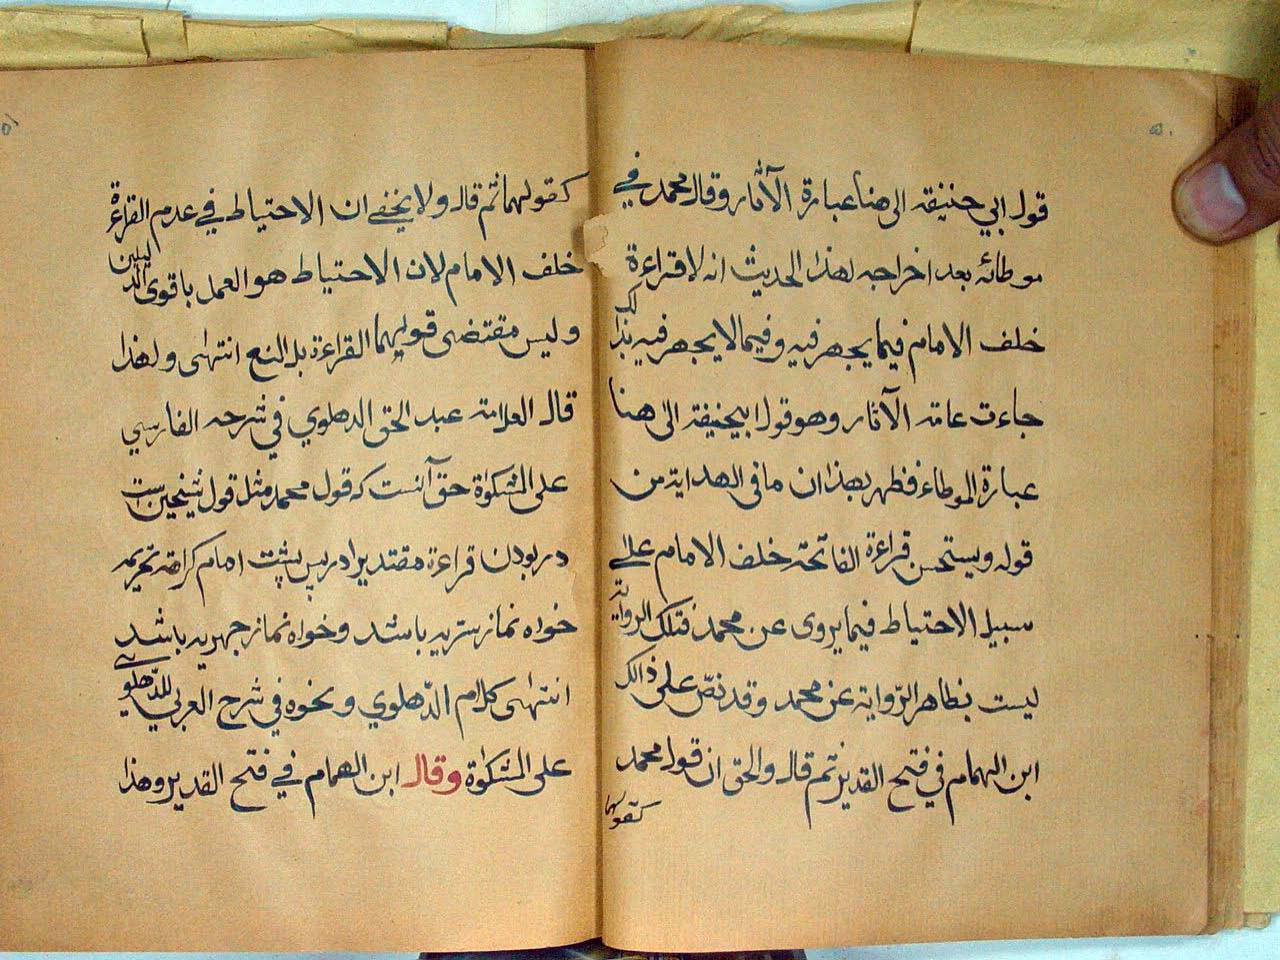 ۵۰
قول ابي حنيفة الى هنا عبارة الآثار وقال محمد في
موطائه بعد اخراجه لهذا الحديث انه لا قراءة
خلف الامام فيما يجهر فيه وفيما لا يجهر فيه بذالك
جاءت عامة الآثار وهو قول ابيحنيفة الى هنا
عبارة الموطاء فظهر بهذا ان ما في الهداية من
قوله ويستحسن قراءة الفاتحة خلف الامام على
سبيل الاحتياط فيما يروى عن محمد فتلك الرواية
ليست بظاهر الرّواية عن محمد وقد نصّ على ذالك
ابن الهمام في فتح القدير ثم قال والحق ان قول محمد
كقولهما
۵۱
كقولهما ثم قال ولا يخفى ان الاحتياط في عدم القراءة
خلف الامام لان الاحتياط هو العمل باقوى الدليلين
وليس مقتضى قوليهما القراءة بل المنع انتهى ولهذا
قال العلامة عبد الحق الدهلوي في شرحه الفارسي
على المشكوٰة حق آنست كه قول محمد مثل قول شيخين است
در بودن قراءة مقتدي را در پس پشت امام كراهة تحريمه
خواه نماز سريه باشد وخواه نماز جهريه باشد
انتهى كلام الدّهلوي ونحوه في شرح العربي للدّهلوي
على المشكوٰة وقال ابن الهمام في فتح القدير وهذا